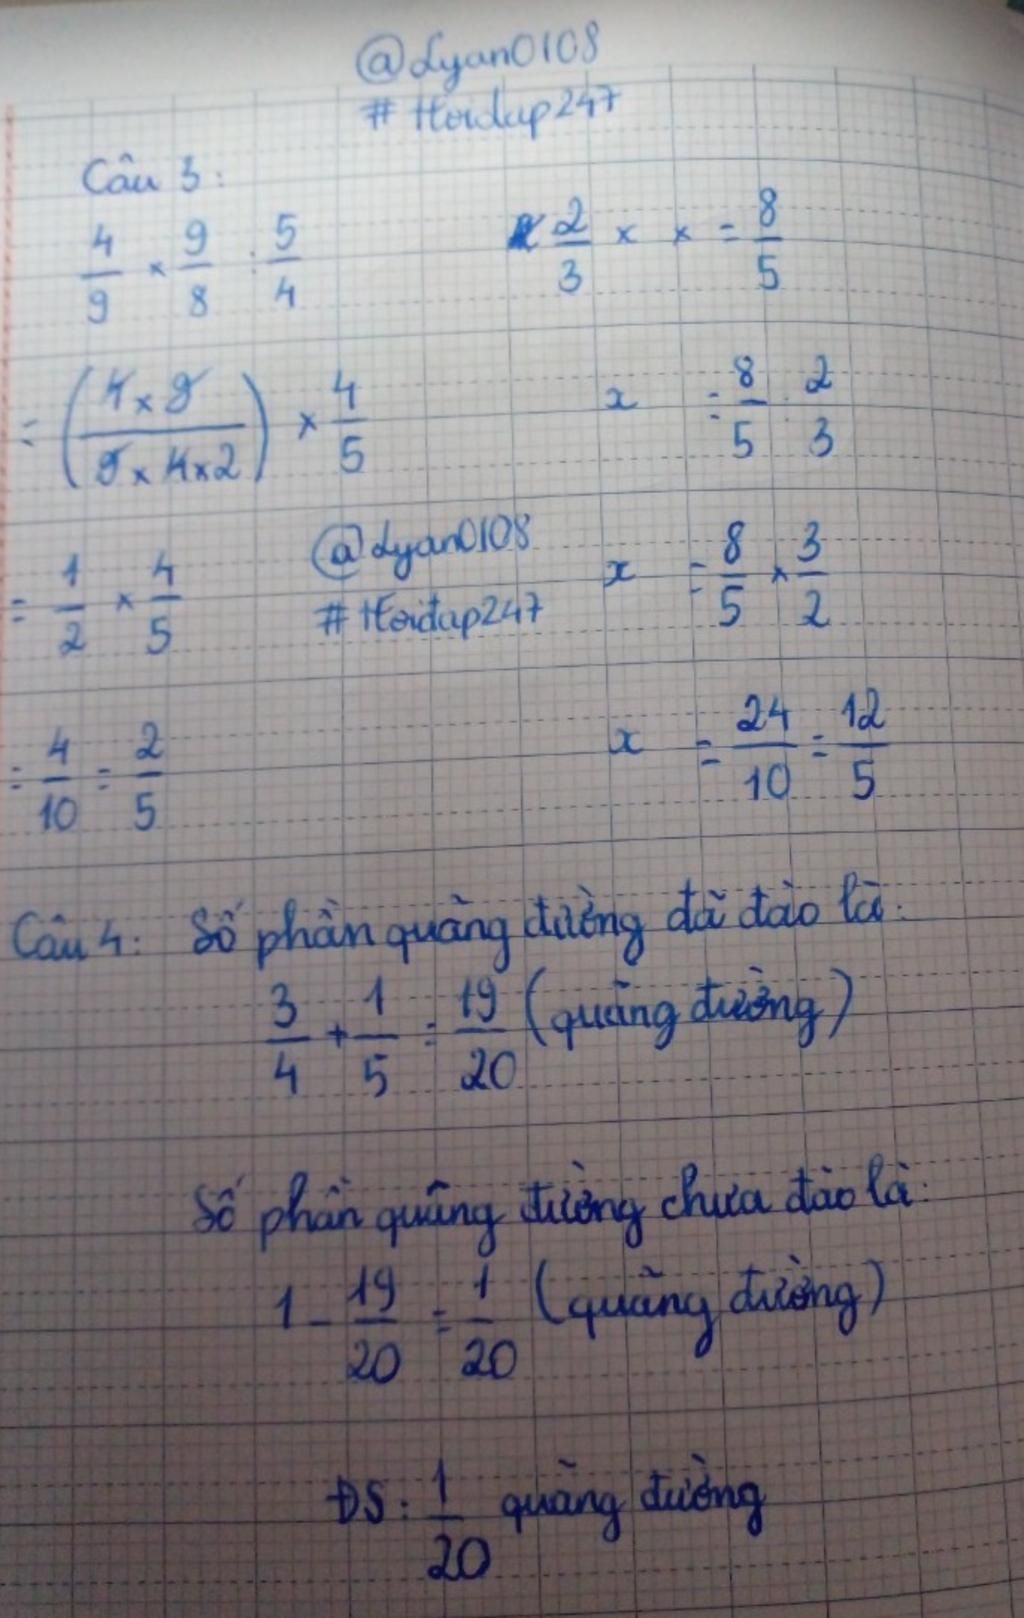 @Lyan0108
# Hoidap247
Câu 3:
4/9 × 9/8 : 5/4
2/3 × x = 8/5
= (4 × 9 / 9 × 4 × 2) × 4/5
x = 8/5 : 2/3
= 1/2 × 4/5
@Lyan0108
# Hoidap247
x = 8/5 × 3/2
= 4/10 = 2/5
x = 24/10 = 12/5
Câu 4: Số phần quãng đường đã đào là:
3/4 + 1/5 = 19/20 (quãng đường)
Số phần quãng đường chưa đào là:
1 - 19/20 = 1/20 (quãng đường)
ĐS: 1/20 quãng đường